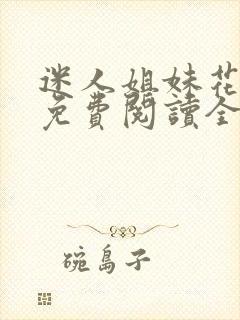 迷人姐妹花
免費閱讀全
碗島子